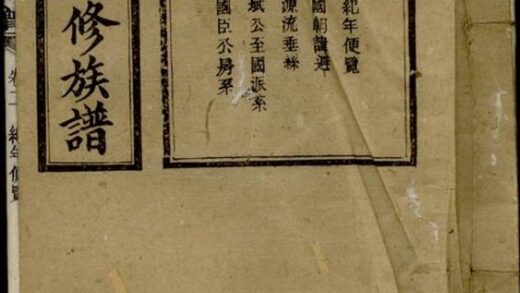 紀年便覽
國朝諱避
源流垂絲
斌公至國派系
國臣公房系
修族譜
卷二 紀年便覽